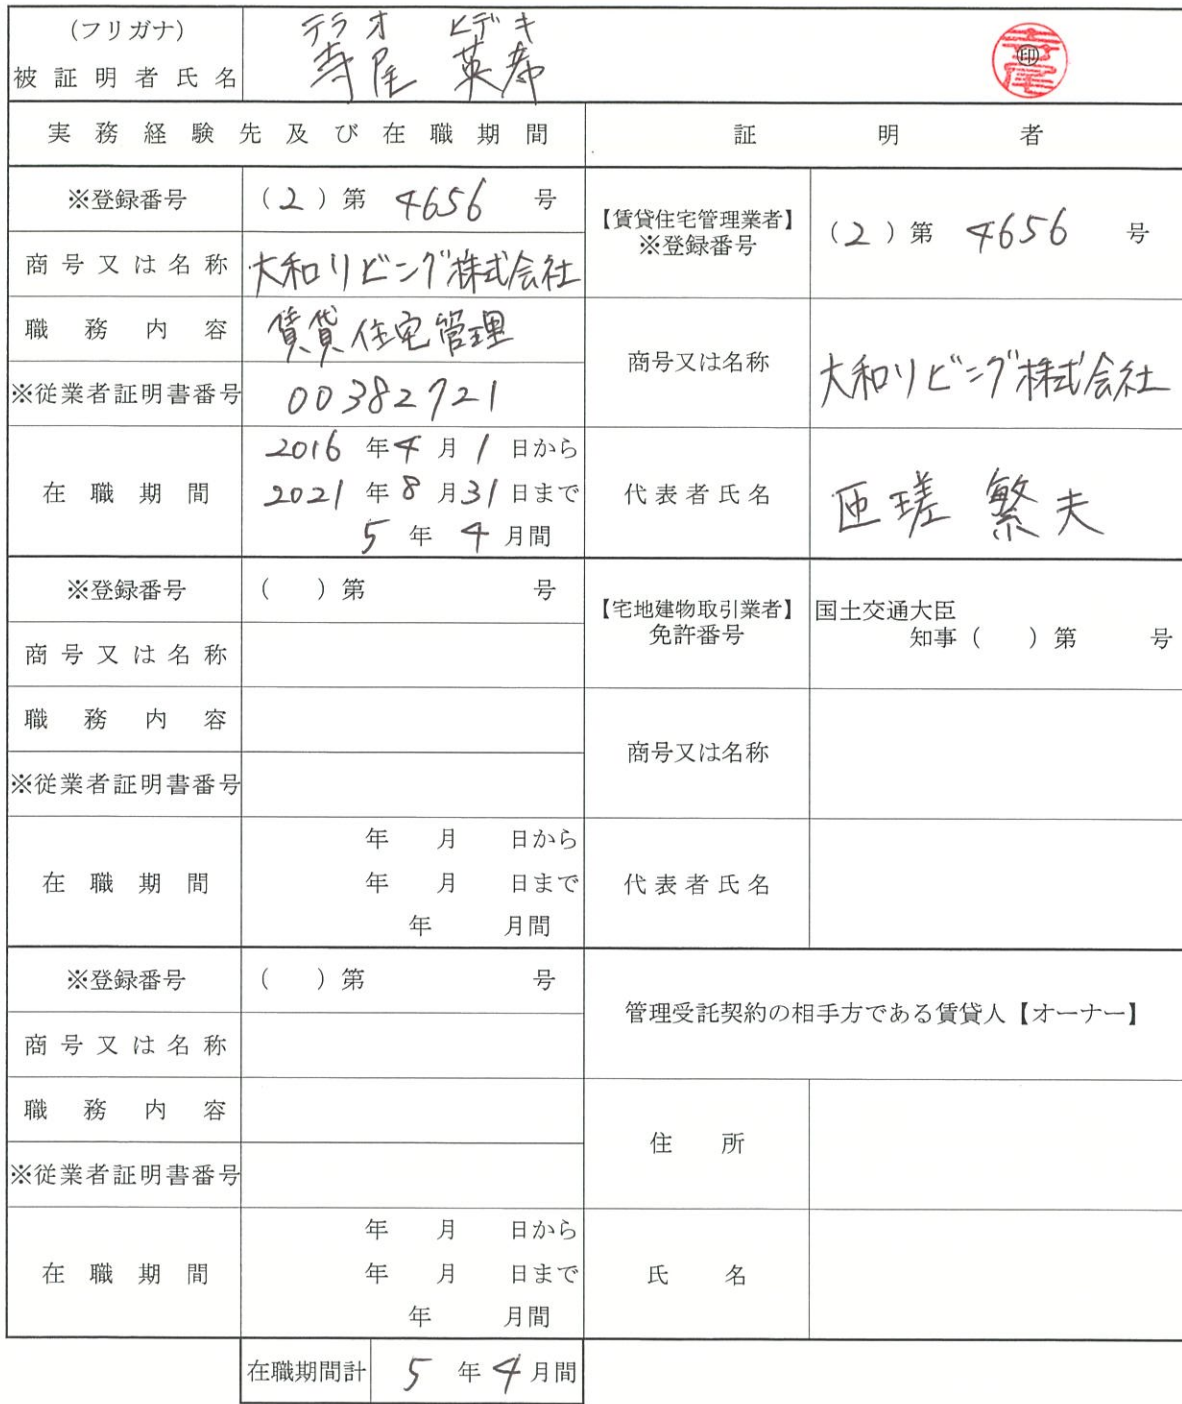 (フリガナ) テラオ ヒデキ
被証明者氏名 寺尾 英希 ㊞ 寺尾
実務経験先及び在職期間 証明者
※登録番号 (2)第 4656 号
商号又は名称 大和リビング株式会社
職務内容 賃貸住宅管理
※従業者証明書番号 00382721
在職期間
2016 年 4 月 1 日から
2021 年 8 月 31 日まで
5 年 4 月間
【賃貸住宅管理業者】
※登録番号 (2)第 4656 号
商号又は名称 大和リビング株式会社
代表者氏名 匝瑳 繁夫
※登録番号 ( )第 号
商号又は名称
職務内容
※従業者証明書番号
在職期間
年 月 日から
年 月 日まで
年 月間
【宅地建物取引業者】
免許番号
国土交通大臣
知事( )第 号
商号又は名称
代表者氏名
※登録番号 ( )第 号
商号又は名称
職務内容
※従業者証明書番号
在職期間
年 月 日から
年 月 日まで
年 月間
管理受託契約の相手方である賃貸人【オーナー】
住所
氏名
在職期間計 5 年 4 月間